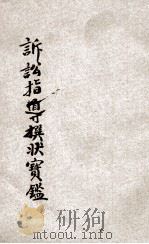 訴訟指導撰狀寶鑑